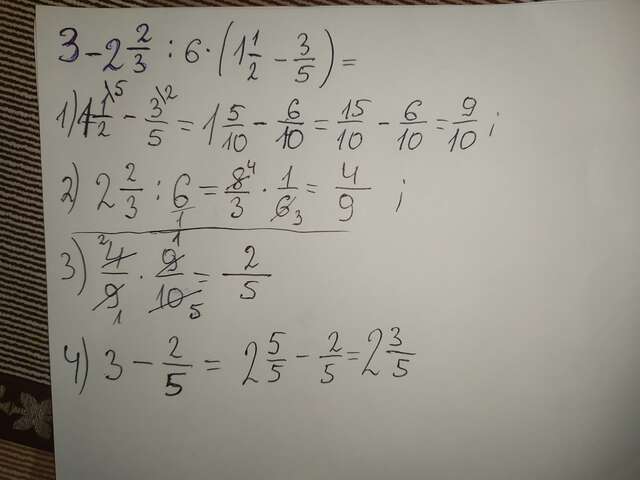 3 - 2 2/3 : 6 · (1 1/2 - 3/5) =
1) 1 1\5/2 - 3\2/5 = 1 5/10 - 6/10 = 15/10 - 6/10 = 9/10 ;
2) 2 2/3 : 6/1 = 8 4/3 · 1/6 3 = 4/9 ;
3) 2 4/9 1 · 9 1/10 5 = 2/5
4) 3 - 2/5 = 2 5/5 - 2/5 = 2 3/5